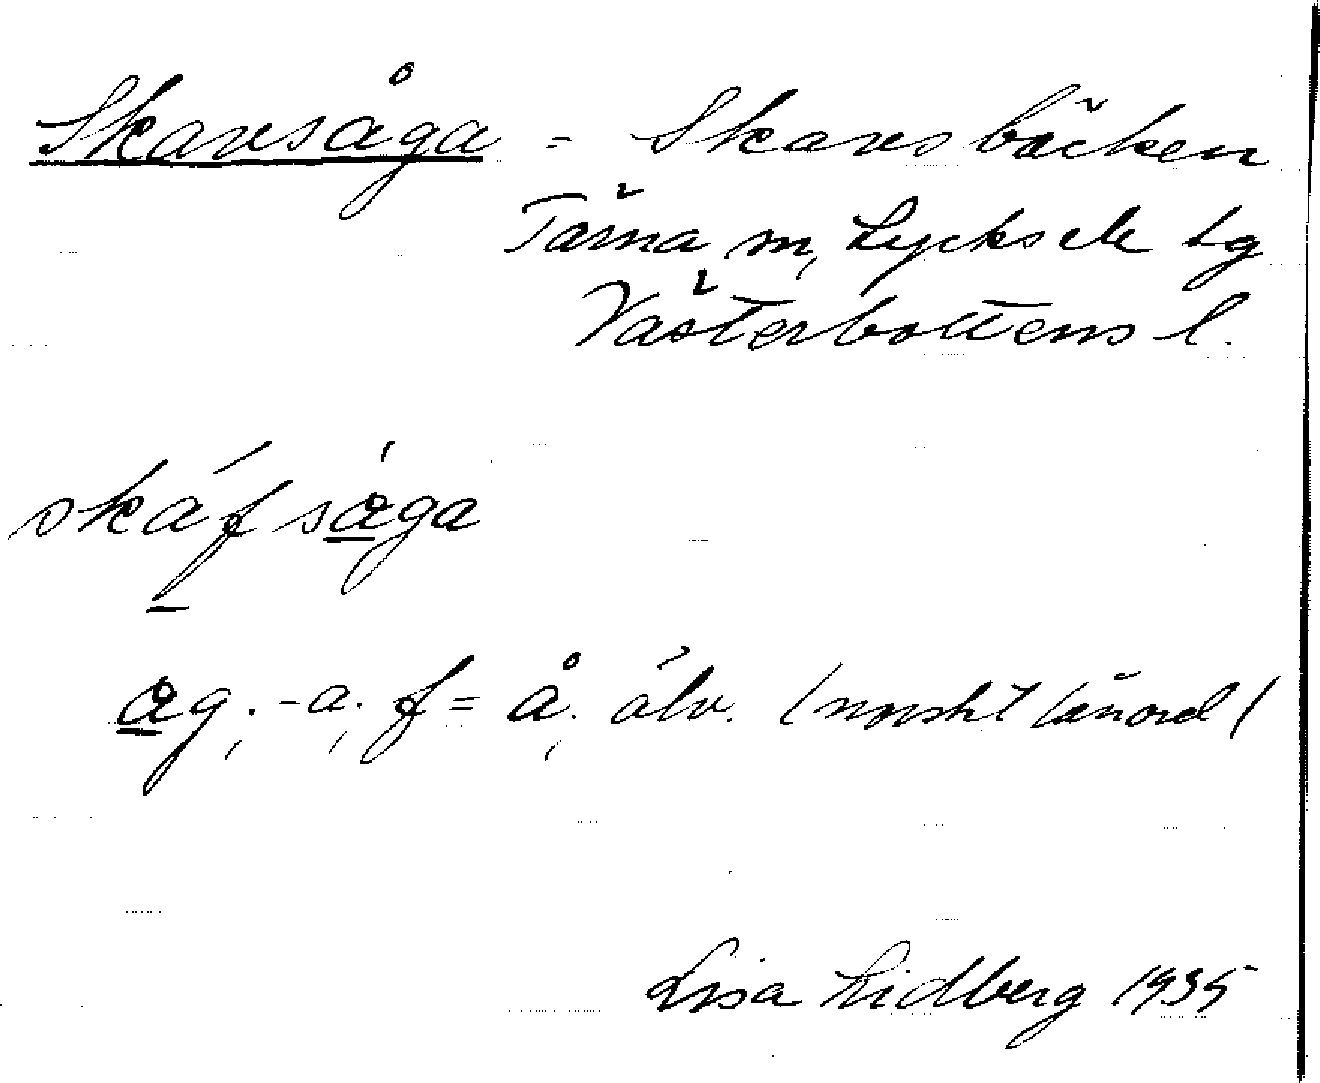 Skavsåga = Skavsbäcken
Tärna sn, Lycksele lg
Västerbottens l.
skáf såga
åg, -a, f = å, älv. (norskt lånord)
Lisa Lidberg 1935